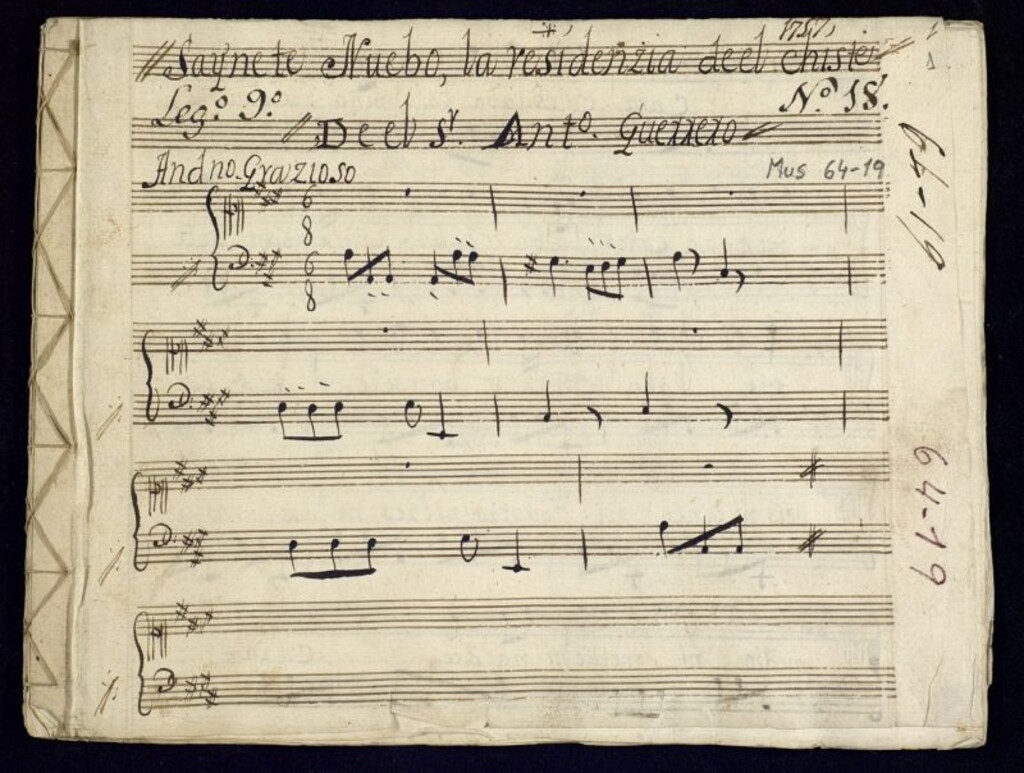 1757,
Saynete Nuebo, la residenzia deel chiste
Leg.º 9.º
N.º 18.
Deel S.r Ant.º Guerrero
Andno. Grazioso
Mus 64-19
6
8
6
8
64-19
64-19